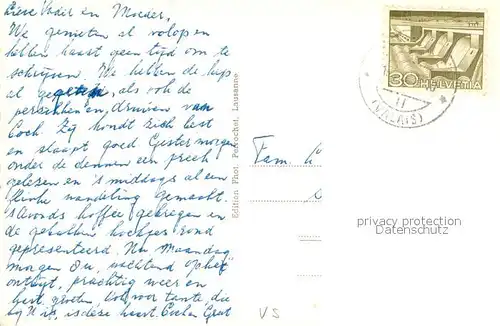 Lieve Vader en Moeder,
We genieten al volop en
hebben haast geen tijd om te
schrijven. We hebben de kip
al gegeten, als ook de
perziken en druiven van
Coob. Zij houdt zich best
en slaapt goed Gistermorgen
onder de dennen een preek
gelezen en 's middags al een
flinke wandeling gemaakt.
's Avonds koffie gekregen en
de gebakken koekjes rond
gepresenteerd. Nu Maandag
morgen 8 u, wachtend op het
ontbijt, prachtig weer en
best, groeten, Ook voor tante, die
bij U is, is deze kaart.
Edition Phot. Perrochet, Lausanne
Fam.
30 HELVETIA
(VALAIS)
privacy protection
Datenschutz
VS